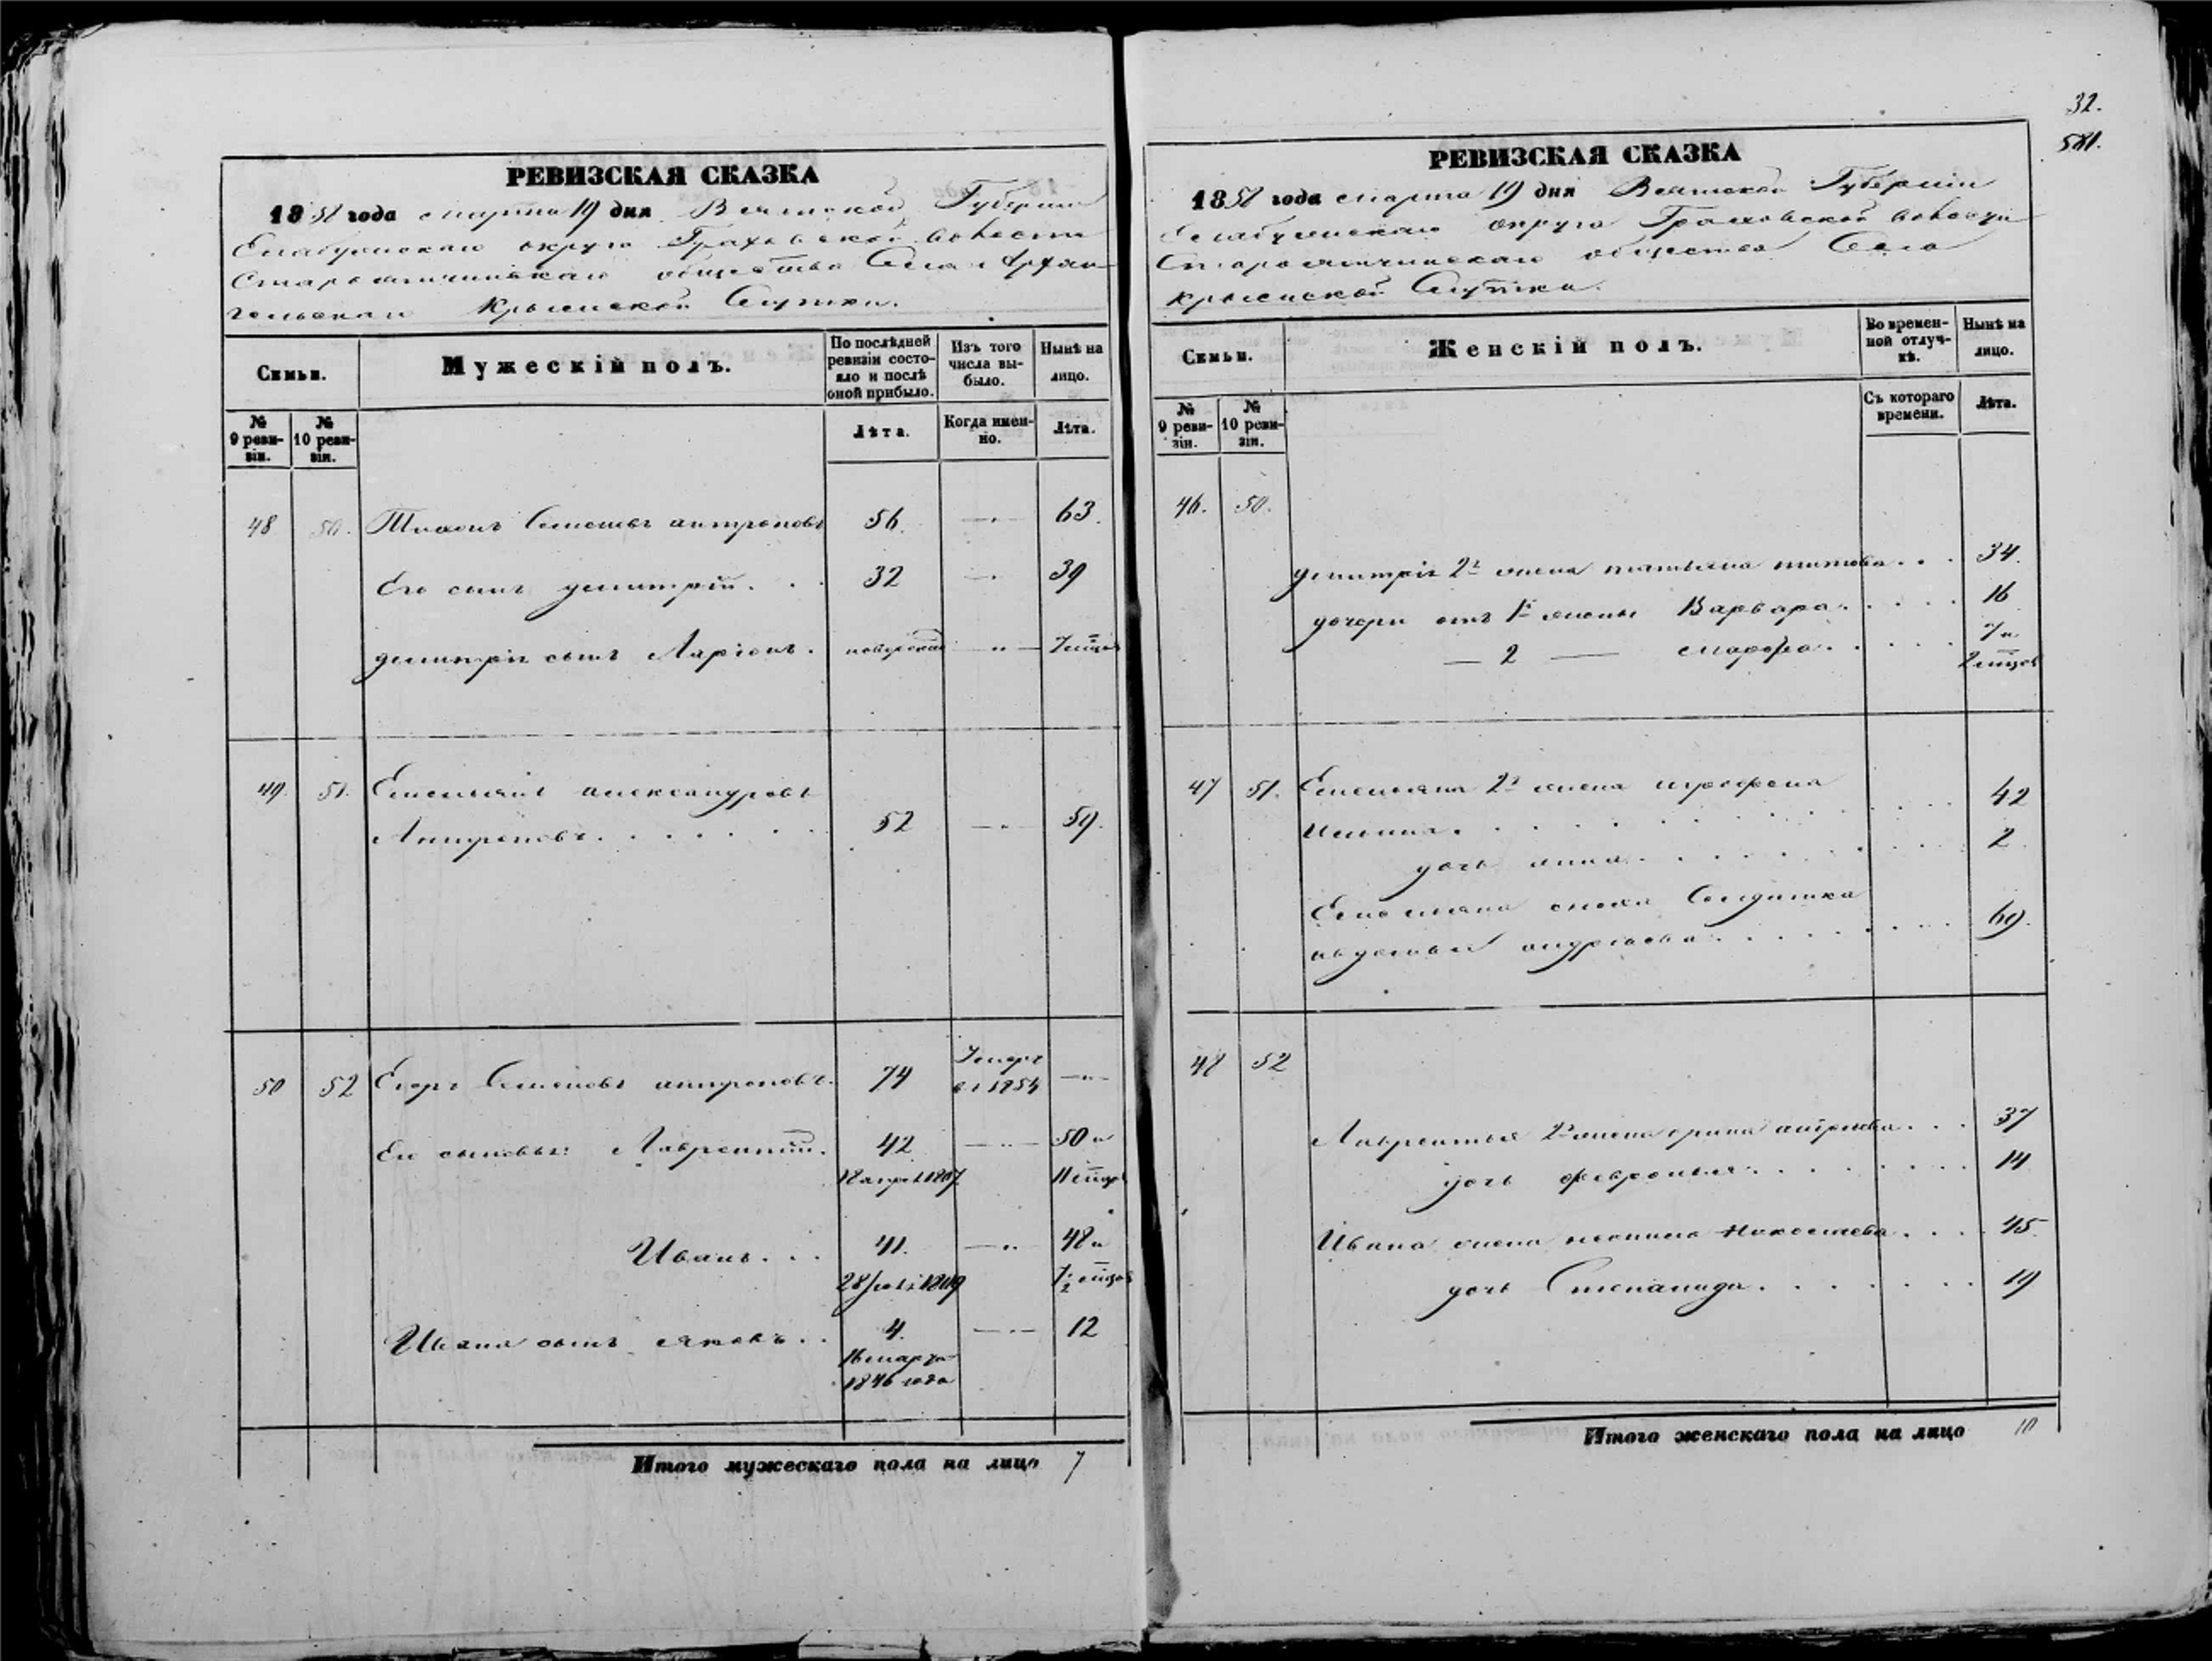 32.
581.
РЕВИЗСКАЯ СКАЗКА
1858 года марта 19 дня Вятской Губернии
Елабужскаго округа Граховской волости
Староятчинскаго общества Села Архан
гельскаго Крымской Слутки.
Семьи.
Мужескій полъ.
По послѣдней
ревизіи состо-
яло и послѣ
оной прибыло.
Изъ того
числа вы-
было.
Нынѣ на
лицо.
№
9 реви-
зіи.
№
10 реви-
зіи.
Лѣта.
Когда имен-
но.
Лѣта.
48 50. Тихонъ Семеновъ Антроповъ 56. 63.
Его сынъ Димитрій. . . 32 39
Димитрія сынъ Ларіонъ.
49. 51. Емельянъ Александровъ
Антроповъ. . . . . . 52 59.
50 52 Егоръ Семеновъ Антроповъ. 74
въ 1854
Его сыновья: Лаврентій. 42 50 и
Иванъ. . . 41. 48 и
Ивана сынъ Яковъ . . 4. 12
16 марта
1846 года
Итого мужескаго пола на лицо 7
РЕВИЗСКАЯ СКАЗКА
1858 года марта 19 дня Вятской Губерніи
Елабужскаго округа Граховской волости
Староятчинскаго общества Села
Крымской Слутки.
Семьи.
Женскій полъ.
Во времен-
ной отлуч-
кѣ.
Нынѣ на
лицо.
№
9 реви-
зіи.
№
10 реви-
зіи.
Съ котораго
времени.
Лѣта.
46. 50.
Димитрія 2я жена Татьяна Титова . . . 34.
дочери отъ 1й жены Варвара . . . . . 16
— 2 — Марфа . . . . . 7 и
2 мѣсяц
47 51. Емельяна 2я жена
. . . . . . . . . . 42
дочь Анна . . . . . . . . . 2.
Емельяна сноха Солдатка
Авдотья Андреева . . . . . . . . . 69.
48 52
Лаврентья 2я жена Ирина Андреева . . . 37
дочь Февронья . . . . . . . . 14
Ивана жена . . . 45
дочь Степанида . . . . . . . 19
Итого женскаго пола на лицо 10